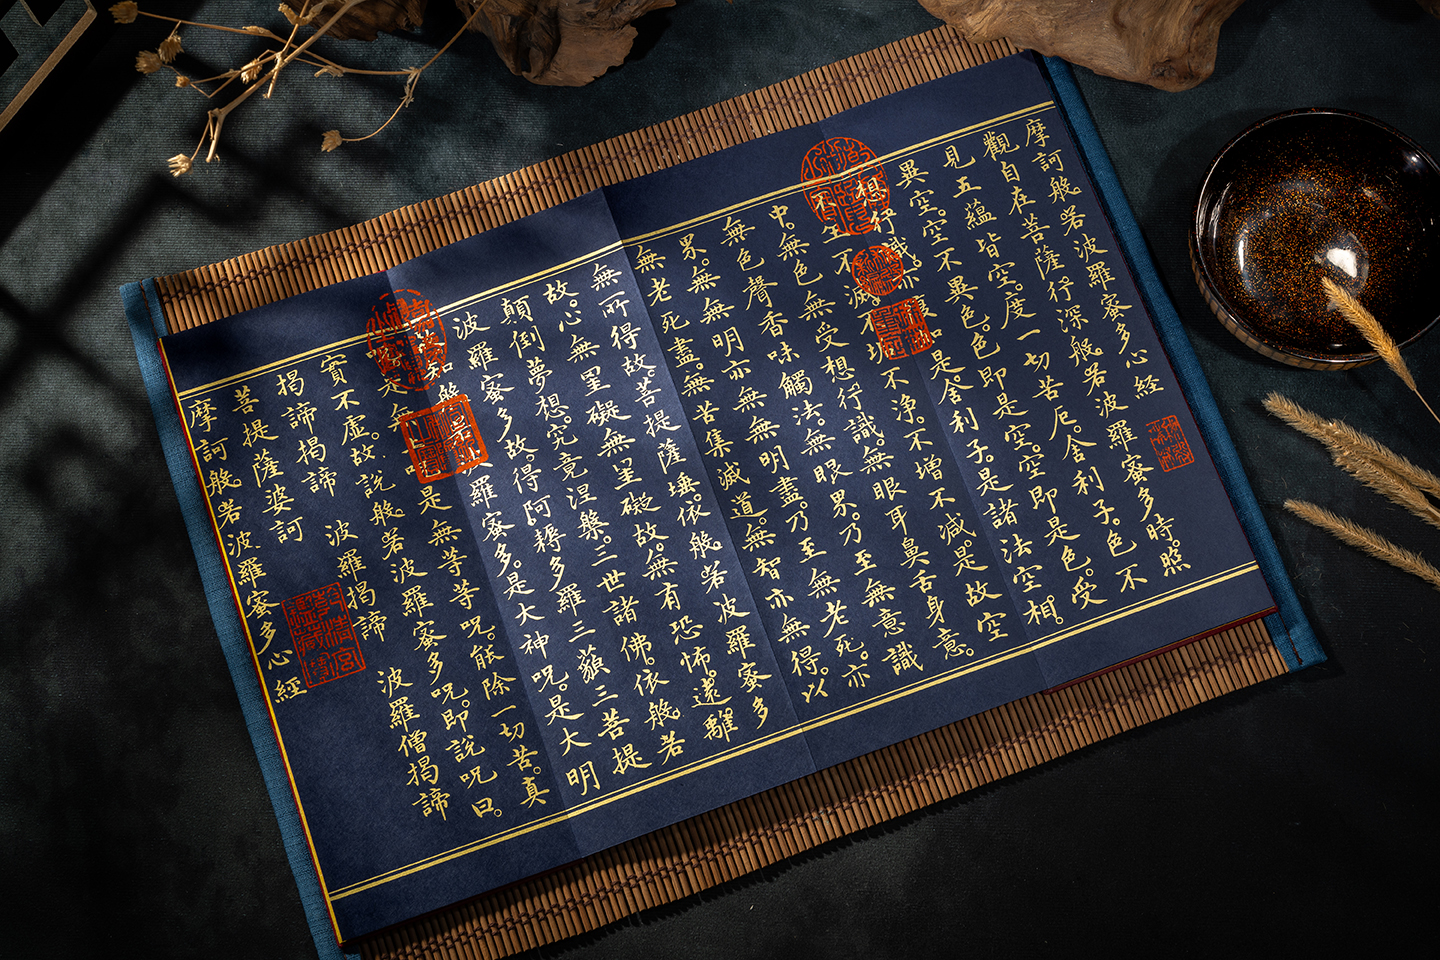 摩訶般若波羅蜜多心經
觀自在菩薩行深般若波羅蜜多時。照
見五蘊皆空。度一切苦厄。舍利子。色不
異空。空不異色。色即是空。空即是色。受
想行識。亦復如是。舍利子。是諸法空相。
不生不滅。不垢不淨。不增不減是故空
中。無色無受想行識。無眼耳鼻舌身意。
無色聲香味觸法。無眼界。乃至無意識
界。無無明亦無無明盡。乃至無老死。亦
無老死盡。無苦集滅道。無智亦無得。以
無所得故。菩提薩埵。依般若波羅蜜多
故。心無罣礙無罣礙故。無有恐怖。遠離
顛倒夢想。究竟涅槃。三世諸佛。依般若
波羅蜜多故。得阿耨多羅三藐三菩提
故知般若波羅蜜多。是大神呪。是大明
呪是無上呪是無等等呪。能除一切苦。真
實不虛。故說般若波羅蜜多呪。即說呪曰。
揭諦揭諦 波羅揭諦 波羅僧揭諦
菩提薩婆訶
乾清宮鑑藏寶
摩訶般若波羅蜜多心經